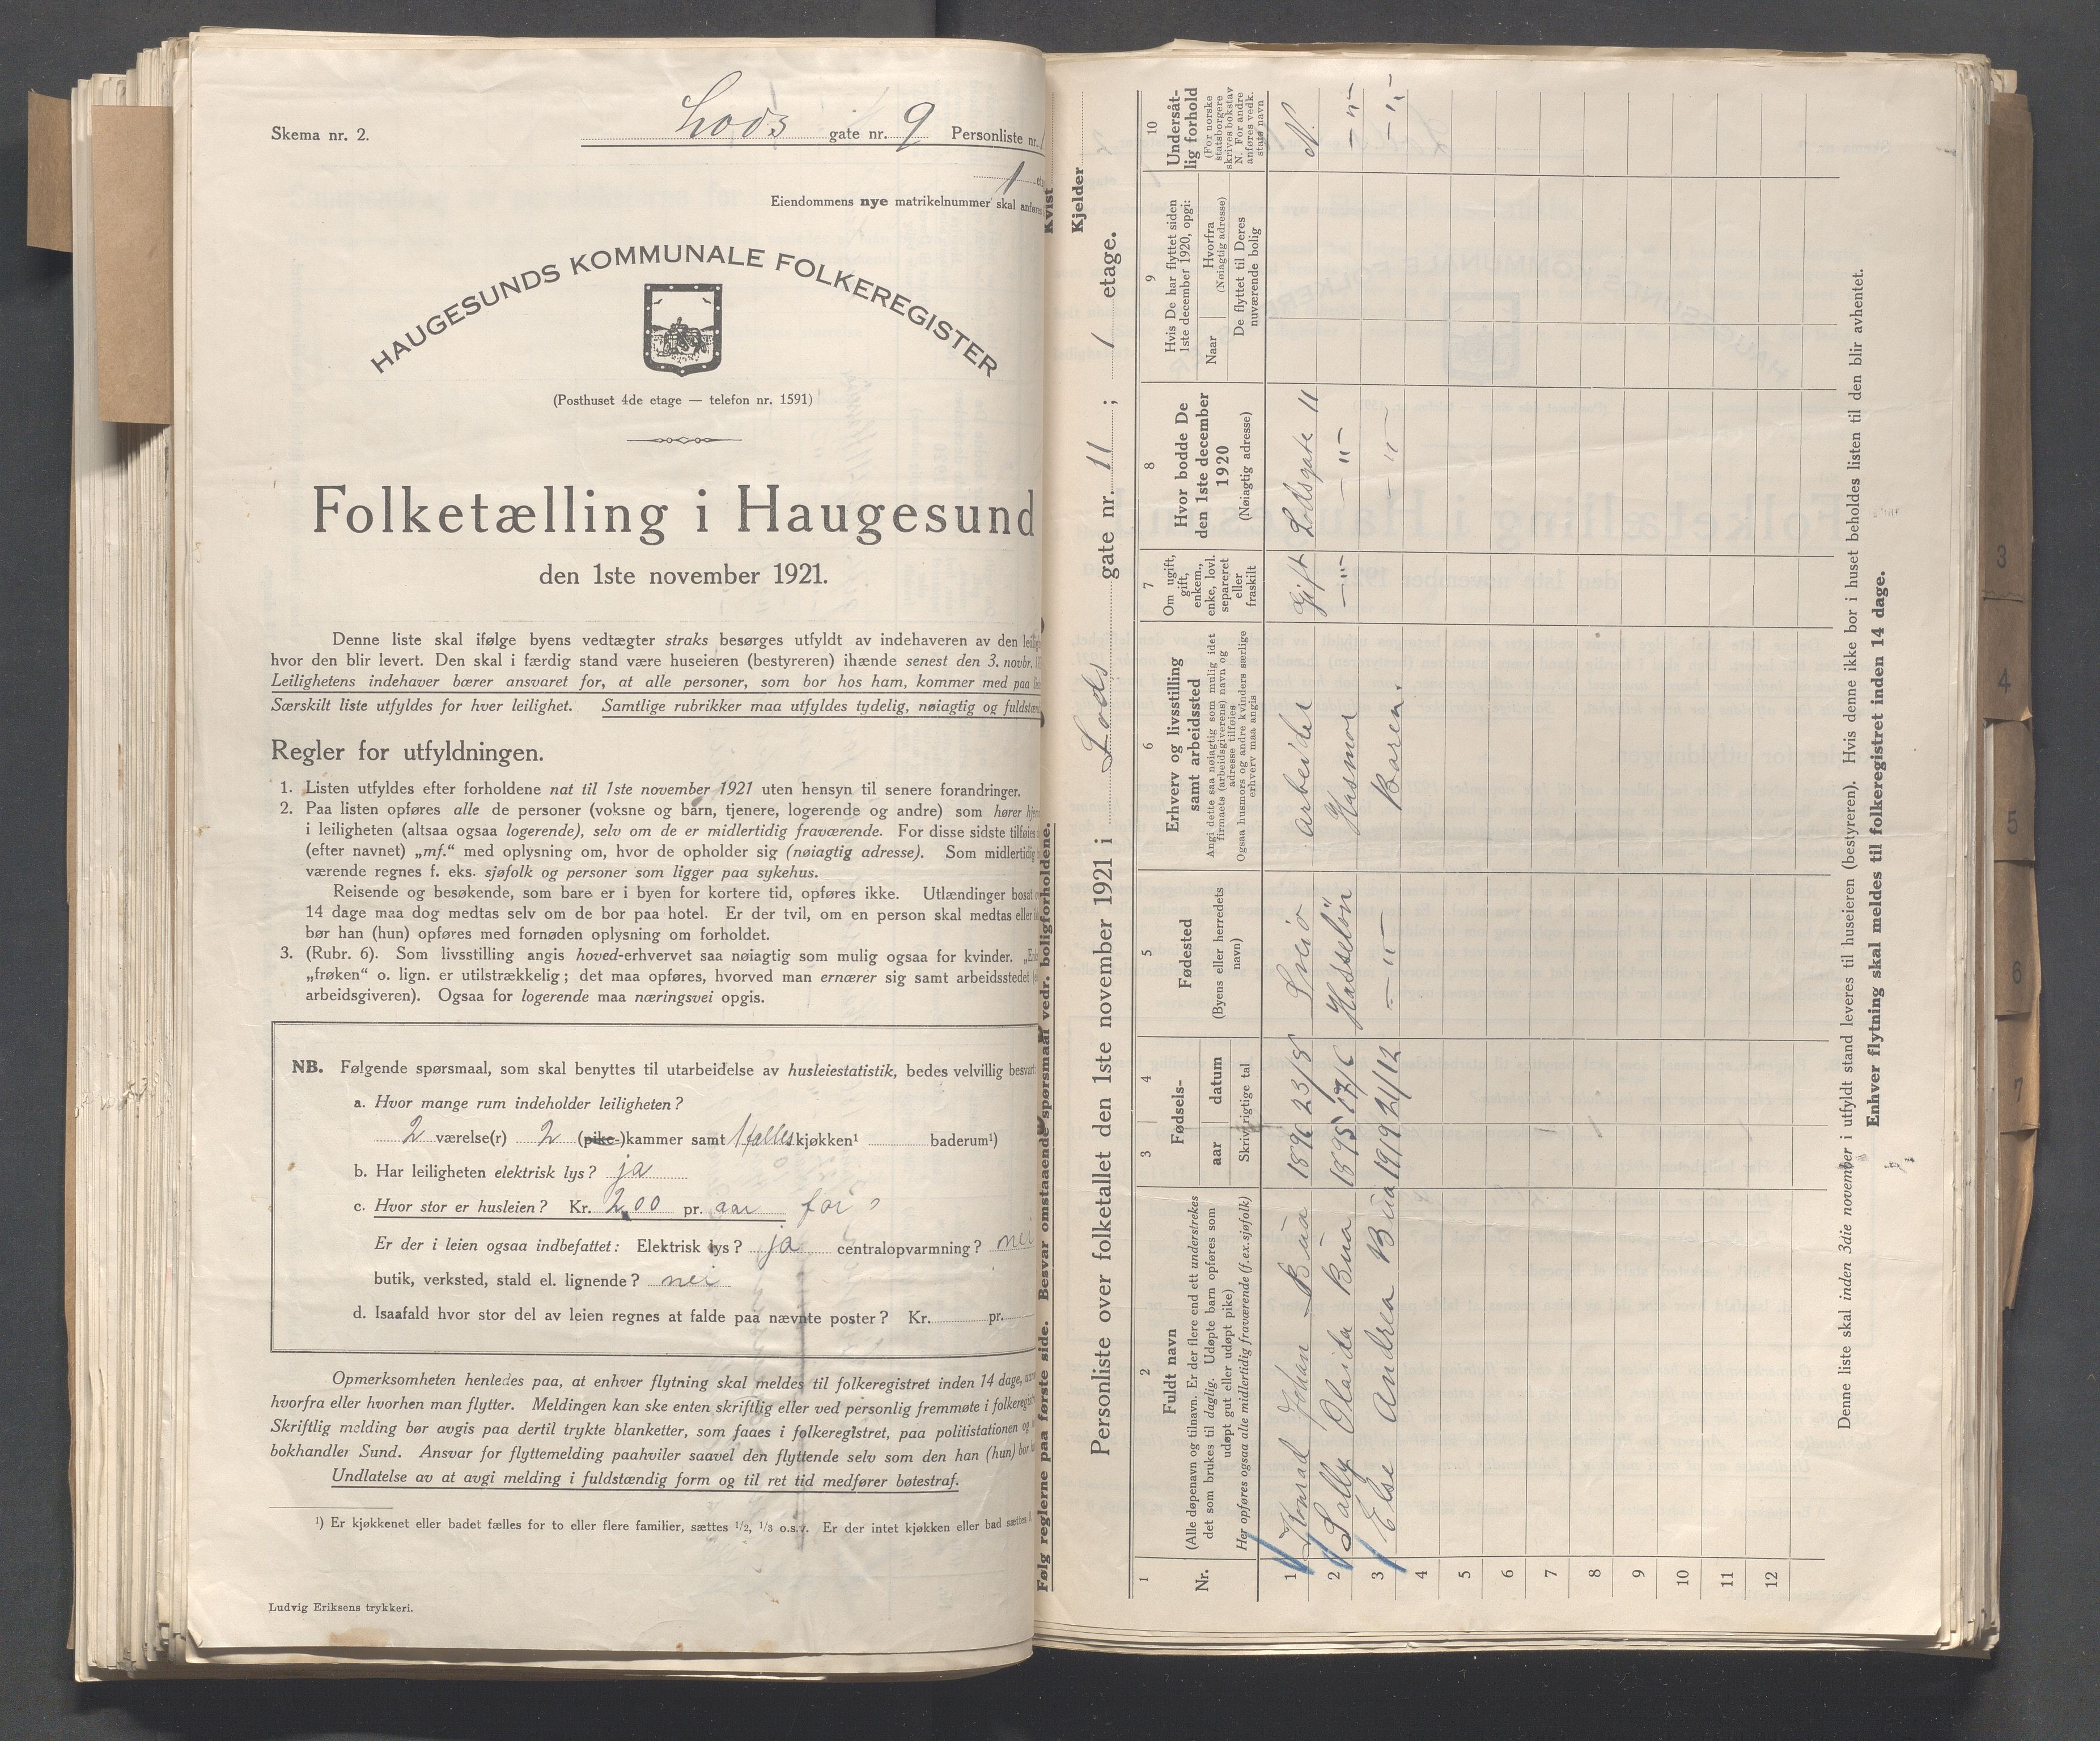 Skema nr. 2.
Lods gate nr. 9 Personliste nr.
1
Eiendommens nye matrikelnummer skal anføres
HAUGESUNDS KOMMUNALE FOLKEREGISTER
(Posthuset 4de etage — telefon nr. 1591)
Folketælling i Haugesund
den 1ste november 1921.
Denne liste skal ifølge byens vedtægter straks besørges utfyldt av indehaveren av den
hvor den blir levert. Den skal i færdig stand være huseieren (bestyreren) ihænde senest den 3. novbr.
Leilighetens indehaver bærer ansvaret for, at alle personer, som bor hos ham, kommer med paa
Særskilt liste utfyldes for hver leilighet. Samtlige rubrikker maa utfyldes tydelig, nøiagtig og
Regler for utfyldningen.
1. Listen utfyldes efter forholdene nat til 1ste november 1921 uten hensyn til senere forandringer.
2. Paa listen opføres alle de personer (voksne og barn, tjenere, logerende og andre) som hører
i leiligheten (altsaa ogsaa logerende), selv om de er midlertidig fraværende. For disse sidste tilføies
(efter navnet) „mf.“ med oplysning om, hvor de opholder sig (nøiagtig adresse). Som midlertidig
værende regnes f. eks. sjøfolk og personer som ligger paa sykehus.
Reisende og besøkende, som bare er i byen for kortere tid, opføres ikke. Utlændinger bosat
14 dage maa dog medtas selv om de bor paa hotel. Er der tvil, om en person skal medtas eller
bør han (hun) opføres med fornøden oplysning om forholdet.
3. (Rubr. 6). Som livsstilling angis hoved-erhvervet saa nøiagtig som mulig ogsaa for kvinder.
„frøken“ o. lign. er utilstrækkelig; det maa opføres, hvorved man ernærer sig samt arbeidsstedet
arbeidsgiveren). Ogsaa for logerende maa næringsvei opgis.
NB. Følgende spørsmaal, som skal benyttes til utarbeidelse av husleiestatistik, bedes velvillig besvart
a. Hvor mange rum indeholder leiligheten?
2 værelse(r) 2 (pike-)kammer samt 1 fælles kjøkken¹ baderum¹)
b. Har leiligheten elektrisk lys? ja
c. Hvor stor er husleien? Kr. 200 pr. aar for
Er der i leien ogsaa indbefattet: Elektrisk lys? ja centralopvarmning? nei
butik, verksted, stald el. lignende? nei
d. Isaafald hvor stor del av leien regnes at falde paa nævnte poster? Kr. pr.
Opmerksomheten henledes paa, at enhver flytning skal meldes til folkeregistret inden 14 dage,
hvorfra eller hvorhen man flytter. Meldingen kan ske enten skriftlig eller ved personlig fremmøte i
Skriftlig melding bør avgis paa dertil trykte blanketter, som faaes i folkeregistret, paa politistationen og
bokhandler Sund. Ansvar for flyttemelding paahviler saavel den flyttende selv som den han (hun) bor
Undlatelse av at avgi melding i fuldstændig form og til ret tid medfører bøtestraf.
¹) Er kjøkkenet eller badet fælles for to eller flere familier, sættes 1/2, 1/3 o.s.v. Er der intet kjøkken eller bad sættes
Ludvig Eriksens trykkeri.
Følg reglerne paa første side. Besvar omstaaende spørsmaal vedr. boligforholdene.
Kvist
Kjelder
Personliste over folketallet den 1ste november 1921 i Lods gate nr. 11 ; 1 etage.
1 2 3 4 5 6 7 8 9 10
Nr.
Fuldt navn
(Alle døpenavn og tilnavn. Er der flere end ett understrekes
det som brukes til daglig. Udøpte barn opføres som
udøpt gut eller udøpt pike)
Her opføres ogsaa alle midlertidig fraværende (f.ex. sjøfolk)
Fødsels-
aar datum
Skriv rigtige tal
Fødested
(Byens eller herredets
navn)
Erhverv og livsstilling
samt arbeidssted
Angi dette saa nøiagtig som mulig idet
firmaets (arbeidsgiverens) navn og
adresse tilføies
Ogsaa husmors og andre kvinders særlige
erhverv maa angis
Om ugift,
gift,
enkem.,
enke, lovl.
separeret
eller
fraskilt
Hvor bodde De
den 1ste december
1920
(Nøiagtig adresse)
Hvis De har flyttet siden
1ste december 1920, opgi:
Naar
Hvorfra
(Nøiagtig adresse)
De flyttet til Deres
nuværende bolig
Undersåt-
lig forhold
(For norske
statsborgere
skrives bokstav
N. For andre
anføres vedk.
stats navn
1 Konrad Johan Bua 1896 23/8 arbeider Gift Lodsgate 11 N.
2 Sally Olaida Bua 1895 17/6 Hasselön Husmor —"— —"— —"—
3 Else Andrea Bua 1919 21/12 —"— Baren. —"— —"—
4
5
6
7
8
9
10
11
12
Denne liste skal inden 3die november i utfyldt stand leveres til huseieren (bestyreren). Hvis denne ikke bor i huset beholdes listen til den blir avhentet.
Enhver flytning skal meldes til folkeregistret inden 14 dage.
3
4
5
6
7